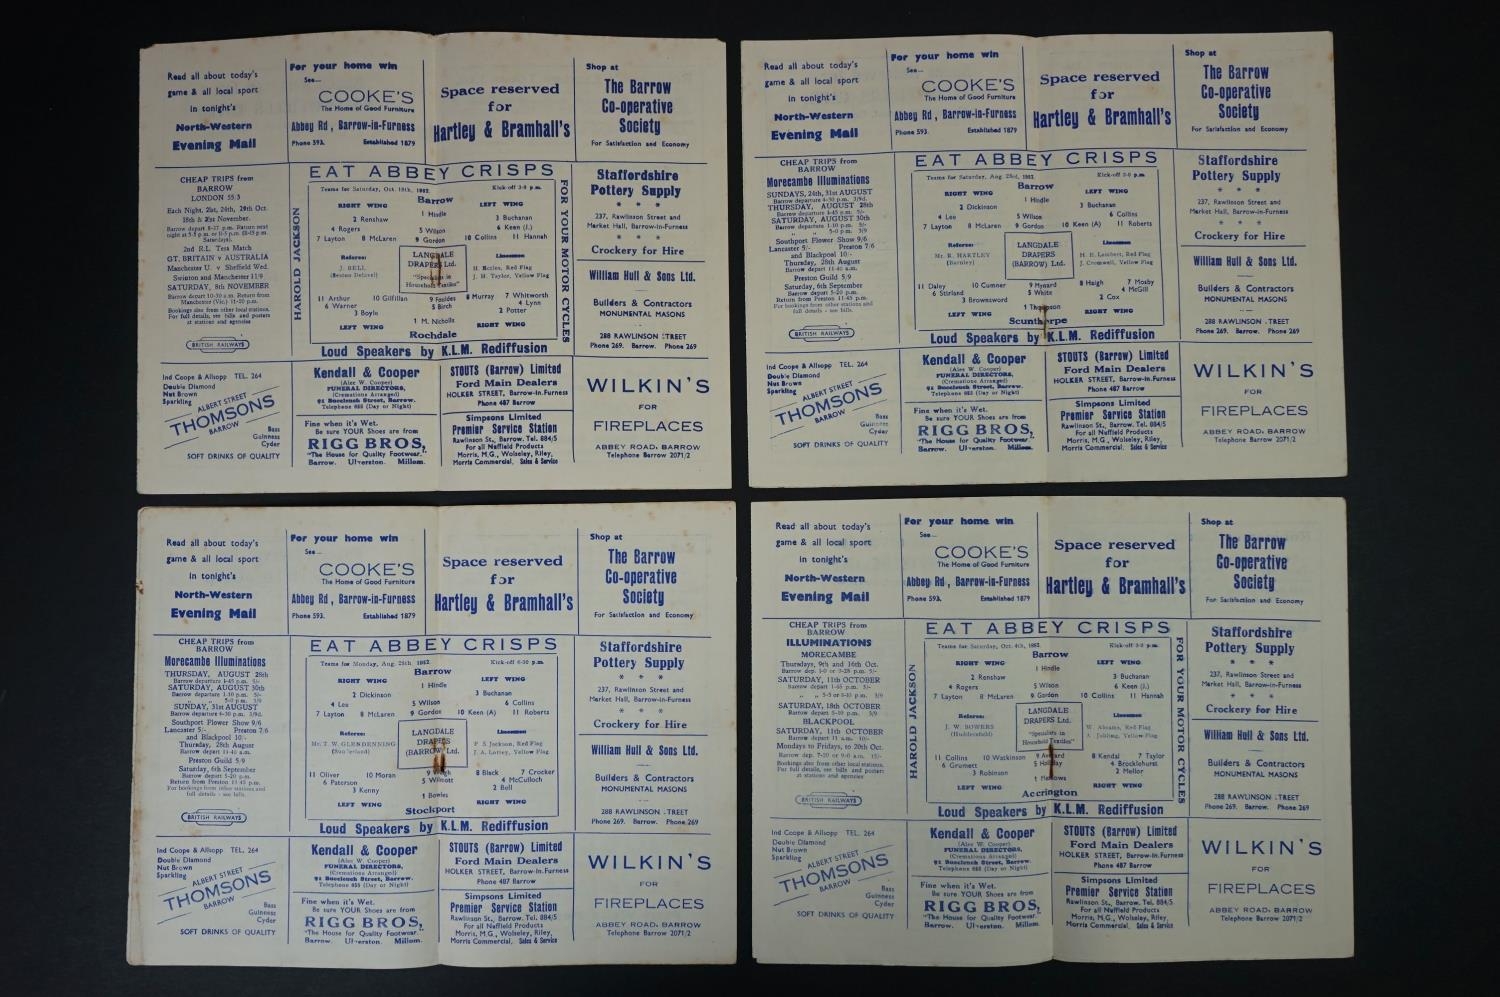 Read all about today's
game & all local sport
in tonight's
North-Western
Evening Mail
For your home win
See...
COOKE'S
The Home of Good Furniture
Abbey Rd, Barrow-in-Furness
Phone 593. Established 1879
Space reserved
for
Hartley & Bramhall's
Shop at
The Barrow
Co-operative
Society
For Satisfaction and Economy
CHEAP TRIPS from
BARROW
LONDON 55/3
Each Night, 21st, 24th, 29th Oct.
18th & 21st November.
2nd R.L. Test Match
GT. BRITAIN v AUSTRALIA
Manchester U. v Sheffield Wed.
Swinton and Manchester 11/9
SATURDAY, 8th NOVEMBER
Barrow depart 10-30 a.m. Return from
Manchester (Vic.) 11-20 p.m.
Bookings also from other local stations.
For full details, see bills and posters
at stations and agencies
BRITISH RAILWAYS
EAT ABBEY CRISPS
HAROLD JACKSON
FOR YOUR MOTOR CYCLES
Teams for Saturday, Oct. 18th, 1952. Kick-off 3-0 p.m.
Barrow
RIGHT WING LEFT WING
1 Hindle
2 Renshaw 3 Buchanan
4 Rogers 5 Wilson 6 Keen (J.)
7 Layton 8 McLaren 9 Gordon 10 Collins 11 Hannah
Referee: Linesmen
J. BELL H. Eccles, Red Flag
J. H. Taylor, Yellow Flag
LANGDALE
DRAPERS Ltd.
"Specialists in
Household Textiles"
11 Arthur 10 Gilfillan 9 Foulds 8 Murray 7 Whitworth
6 Warner 5 Birch 4 Lynn
3 Boyle 2 Potter
1 M. Nicholls
LEFT WING RIGHT WING
Rochdale
Loud Speakers by K.L.M. Rediffusion
Staffordshire
Pottery Supply
* * *
237, Rawlinson Street and
Market Hall, Barrow-in-Furness
* * *
Crockery for Hire
William Hull & Sons Ltd.
Builders & Contractors
MONUMENTAL MASONS
288 RAWLINSON .TREET
Phone 269. Barrow. Phone 269
Ind Coope & Allsopp TEL. 264
Double Diamond
Nut Brown
Sparkling
ALBERT STREET
THOMSONS
BARROW
Bass
Guinness
Cyder
SOFT DRINKS OF QUALITY
Kendall & Cooper
(Alec W. Cooper)
FUNERAL DIRECTORS,
(Cremations Arranged)
91 Buccleuch Street, Barrow.
Telephone 655 (Day or Night)
Fine when it's Wet.
Be sure YOUR Shoes are from
RIGG BROS,
"The House for Quality Footwear."
Barrow. Ulverston. Millom.
STOUTS (Barrow) Limited
Ford Main Dealers
HOLKER STREET, Barrow-in-Furness
Phone 487 Barrow
Simpsons Limited
Premier Service Station
Rawlinson St., Barrow. Tel. 884/5
For all Nuffield Products
Morris, M.G., Wolseley, Riley,
Morris Commercial. Sales & Service
WILKIN'S
FOR
FIREPLACES
ABBEY ROAD, BARROW
Telephone Barrow 2071/2
Read all about today's
game & all local sport
in tonight's
North-Western
Evening Mail
For your home win
See...
COOKE'S
The Home of Good Furniture
Abbey Rd, Barrow-in-Furness
Phone 593 Established 1879
Space reserved
for
Hartley & Bramhall's
Shop at
The Barrow
Co-operative
Society
For Satisfaction and Economy
CHEAP TRIPS from
BARROW
Morecambe Illuminations
SUNDAYS, 24th, 31st AUGUST
Barrow departure 4-30 p.m. 3/9d.
THURSDAY, AUGUST 28th
Barrow departure 1-45 p.m. 5/-
SATURDAY, AUGUST 30th
Barrow departure 1-10 p.m. 5/-
5-0 p.m. 3/9
Southport Flower Show 9/6
Lancaster 5/- Preston 7/6
and Blackpool 10/-
Thursday, 28th August
Barrow depart 11-40 a.m.
Preston Guild 5/9
Saturday, 6th September
Barrow depart 5-20 p.m.
Return from Preston 11-45 p.m.
For bookings from other stations and
full details - see bills.
BRITISH RAILWAYS
EAT ABBEY CRISPS
Teams for Saturday, Aug. 23rd, 1952. Kick-off 3-0 p.m.
Barrow
RIGHT WING LEFT WING
1 Hindle
2 Dickinson 3 Buchanan
4 Lee 5 Wilson 6 Collins
7 Layton 8 McLaren 9 Gordon 10 Keen (A) 11 Roberts
Referee: Linesmen
Mr. R. HARTLEY H. E. Lambert, Red Flag
(Burnley) J. Cromwell, Yellow Flag
LANGDALE
DRAPERS
(BARROW) Ltd.
11 Daley 10 Cumner 9 Mynard 8 Haigh 7 Mosby
6 Stirland 5 White 4 McGill
3 Brownsword 2 Cox
LEFT WING RIGHT WING
Scunthorpe
Loud Speakers by K.L.M. Rediffusion
Staffordshire
Pottery Supply
* * *
237, Rawlinson Street and
Market Hall, Barrow-in-Furness
* * *
Crockery for Hire
William Hull & Sons Ltd.
Builders & Contractors
MONUMENTAL MASONS
288 RAWLINSON .TREET
Phone 269. Barrow. Phone 269
Ind Coope & Allsopp TEL. 264
Double Diamond
Nut Brown
Sparkling
ALBERT STREET
THOMSONS
BARROW
Bass
Guinness
Cyder
SOFT DRINKS OF QUALITY
Kendall & Cooper
(Alec W. Cooper)
FUNERAL DIRECTORS,
(Cremations Arranged)
91 Buccleuch Street, Barrow.
Telephone 655 (Day or Night)
Fine when it's Wet.
Be sure YOUR Shoes are from
RIGG BROS,
"The House for Quality Footwear."
Barrow. Ulverston. Millom.
STOUTS (Barrow) Limited
Ford Main Dealers
HOLKER STREET, Barrow-in-Furness
Phone 487 Barrow
Simpsons Limited
Premier Service Station
Rawlinson St., Barrow. Tel. 884/5
For all Nuffield Products
Morris, M.G., Wolseley, Riley,
Morris Commercial. Sales & Service
WILKIN'S
FOR
FIREPLACES
ABBEY ROAD, BARROW
Telephone Barrow 2071/2
Read all about today's
game & all local sport
in tonight's
North-Western
Evening Mail
For your home win
See...
COOKE'S
The Home of Good Furniture
Abbey Rd, Barrow-in-Furness
Phone 593. Established 1879
Space reserved
for
Hartley & Bramhall's
Shop at
The Barrow
Co-operative
Society
For Satisfaction and Economy
CHEAP TRIPS from
BARROW
Morecambe Illuminations
THURSDAY, AUGUST 28th
Barrow departure 1-45 p.m. 5/-
SATURDAY, AUGUST 30th
Barrow departure 1-10 p.m. 5/-
5-0 p.m. 3/9
SUNDAY, 31st AUGUST
Barrow departure 4-30 p.m. 3/9d.
Southport Flower Show 9/6
Lancaster 5/- Preston 7/6
and Blackpool 10/-
Thursday, 28th August
Barrow depart 11-40 a.m.
Preston Guild 5/9
Saturday, 6th September
Barrow depart 5-20 p.m.
Return from Preston 11-45 p.m.
For bookings from other stations and
full details - see bills.
BRITISH RAILWAYS
EAT ABBEY CRISPS
Teams for Monday, Aug. 25th, 1952. Kick-off 6-30 p.m.
Barrow
RIGHT WING LEFT WING
1 Hindle
2 Dickinson 3 Buchanan
4 Lee 5 Wilson 6 Collins
7 Layton 8 McLaren 9 Gordon 10 Keen (A) 11 Roberts
Referee: Linesmen
Mr. T. W. GLENDENNING P. S. Jackson, Red Flag
J. A. Lottey, Yellow Flag
LANGDALE
DRAPERS
(BARROW) Ltd.
11 Oliver 10 Moran 8 Black 7 Crocker
6 Paterson 5 Wilmott 4 McCulloch
3 Kenny 2 Bell
1 Bowles
LEFT WING RIGHT WING
Stockport
Loud Speakers by K.L.M. Rediffusion
Staffordshire
Pottery Supply
* * *
237, Rawlinson Street and
Market Hall, Barrow-in-Furness
* * *
Crockery for Hire
William Hull & Sons Ltd.
Builders & Contractors
MONUMENTAL MASONS
288 RAWLINSON .TREET
Phone 269. Barrow. Phone 269
Ind Coope & Allsopp TEL. 264
Double Diamond
Nut Brown
Sparkling
ALBERT STREET
THOMSONS
BARROW
Bass
Guinness
Cyder
SOFT DRINKS OF QUALITY
Kendall & Cooper
(Alec W. Cooper)
FUNERAL DIRECTORS,
(Cremations Arranged)
91 Buccleuch Street, Barrow.
Telephone 655 (Day or Night)
Fine when it's Wet.
Be sure YOUR Shoes are from
RIGG BROS,
"The House for Quality Footwear."
Barrow. Ulverston. Millom.
STOUTS (Barrow) Limited
Ford Main Dealers
HOLKER STREET, Barrow-in-Furness
Phone 487 Barrow
Simpsons Limited
Premier Service Station
Rawlinson St., Barrow. Tel. 884/5
For all Nuffield Products
Morris, M.G., Wolseley, Riley,
Morris Commercial. Sales & Service
WILKIN'S
FOR
FIREPLACES
ABBEY ROAD, BARROW
Telephone Barrow 2071/2
Read all about today's
game & all local sport
in tonight's
North-Western
Evening Mail
For your home win
See...
COOKE'S
The Home of Good Furniture
Abbey Rd, Barrow-in-Furness
Phone 593. Established 1879
Space reserved
for
Hartley & Bramhall's
Shop at
The Barrow
Co-operative
Society
For Satisfaction and Economy
CHEAP TRIPS from
BARROW
ILLUMINATIONS
MORECAMBE
Thursdays, 9th and 16th Oct.
SATURDAY, 11th OCTOBER
Barrow depart 1-45 p.m. 5/-
SATURDAY, 18th OCTOBER
Barrow depart 5-10 p.m. 3/9
BLACKPOOL
SATURDAY, 11th OCTOBER
Barrow depart 11 a.m. 10/-
Mondays to Fridays, to 20th Oct.
Bookings also from other local stations.
For full details, see bills and posters
at stations and agencies
BRITISH RAILWAYS
EAT ABBEY CRISPS
HAROLD JACKSON
FOR YOUR MOTOR CYCLES
Teams for Saturday, Oct. 4th, 1952. Kick-off 3-0 p.m.
Barrow
RIGHT WING LEFT WING
1 Hindle
2 Renshaw 3 Buchanan
4 Rogers 5 Wilson 6 Keen (J.)
7 Layton 8 McLaren 9 Gordon 10 Collins 11 Hannah
Referee: Linesmen
J. W. BOWERS W. Abrams, Red Flag
(Huddersfield) Jobling, Yellow Flag
LANGDALE
DRAPERS Ltd.
"Specialists in
Household Textiles"
11 Collins 10 Watkinson 8 Kendal 7 Taylor
6 Grumett 4 Brocklehurst
3 Robinson 2 Mellor
LEFT WING RIGHT WING
Accrington
Loud Speakers by K.L.M. Rediffusion
Staffordshire
Pottery Supply
* * *
237, Rawlinson Street and
Market Hall, Barrow-in-Furness
* * *
Crockery for Hire
William Hull & Sons Ltd.
Builders & Contractors
MONUMENTAL MASONS
288 RAWLINSON .TREET
Phone 269. Barrow. Phone 269
Ind Coope & Allsopp TEL. 264
Double Diamond
Nut Brown
Sparkling
ALBERT STREET
THOMSONS
BARROW
Bass
Guinness
Cyder
SOFT DRINKS OF QUALITY
Kendall & Cooper
(Alec W. Cooper)
FUNERAL DIRECTORS,
(Cremations Arranged)
91 Buccleuch Street, Barrow.
Telephone 655 (Day or Night)
Fine when it's Wet.
Be sure YOUR Shoes are from
RIGG BROS,
"The House for Quality Footwear."
Barrow. Ulverston. Millom.
STOUTS (Barrow) Limited
Ford Main Dealers
HOLKER STREET, Barrow-in-Furness
Phone 487 Barrow
Simpsons Limited
Premier Service Station
Rawlinson St., Barrow. Tel. 884/5
For all Nuffield Products
Morris, M.G., Wolseley, Riley,
Morris Commercial. Sales & Service
WILKIN'S
FOR
FIREPLACES
ABBEY ROAD, BARROW
Telephone Barrow 2071/2